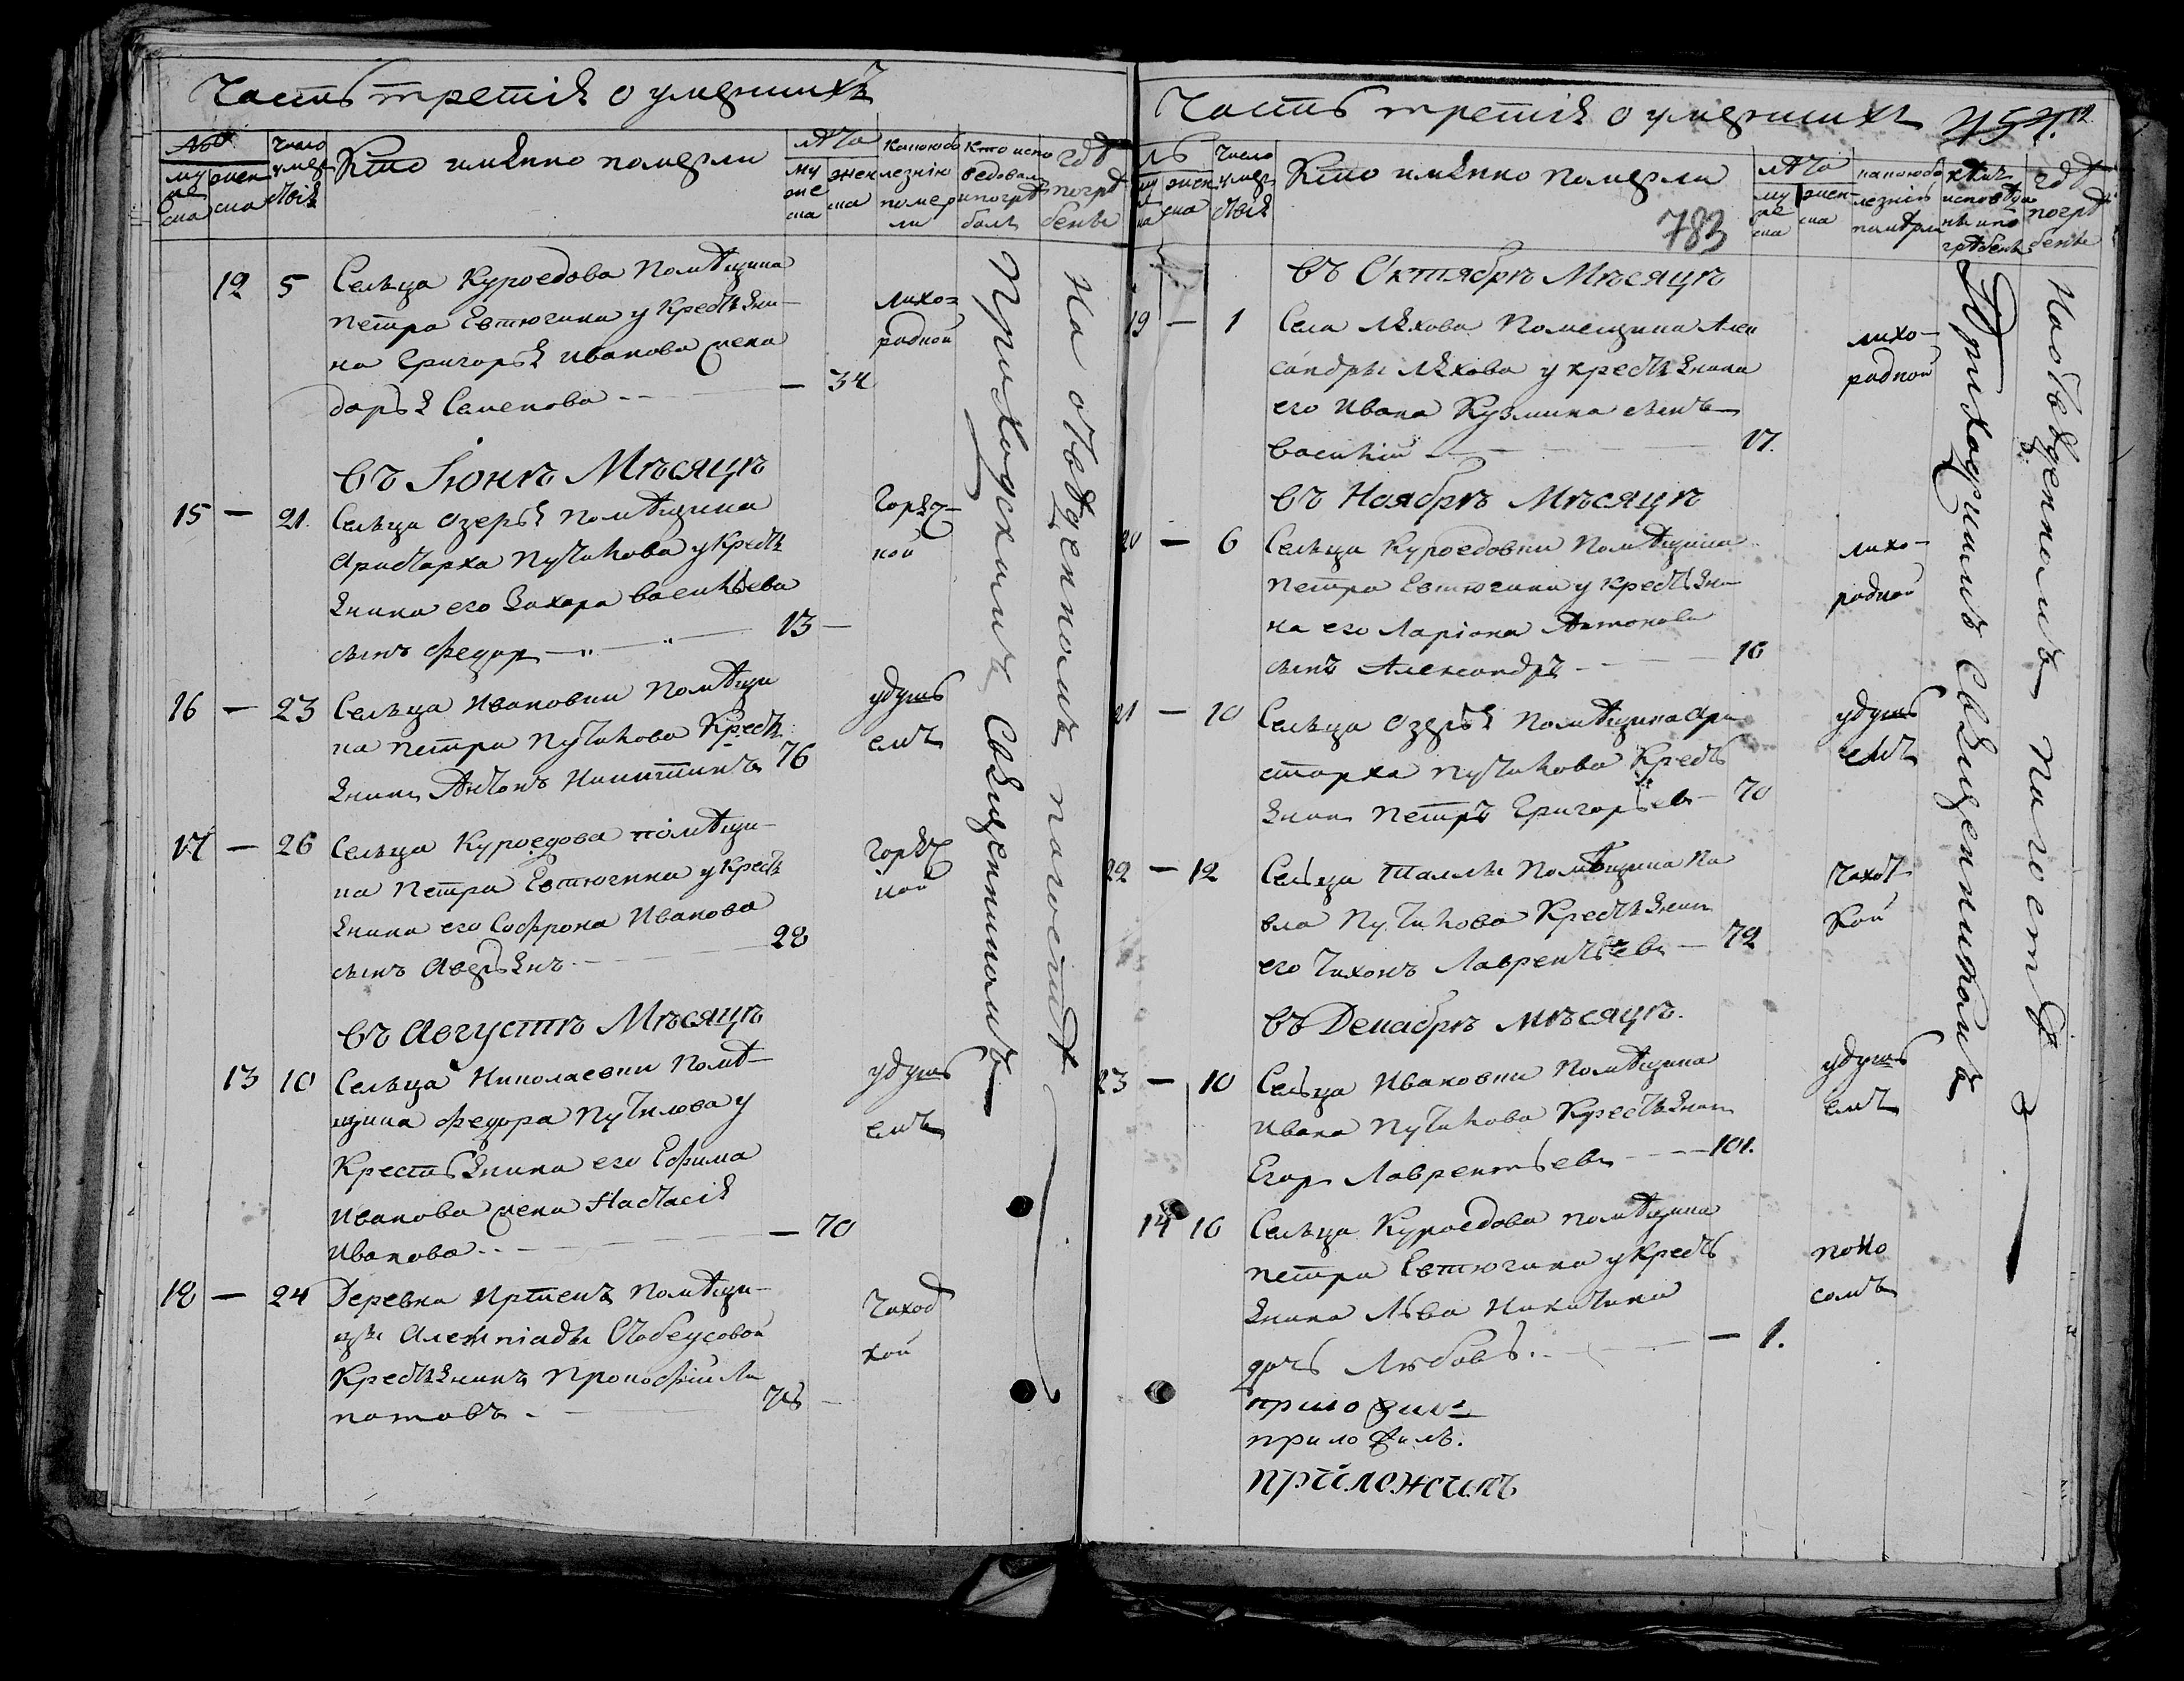 Часть третія о умершихъ
№
му
же
ска
жен
ска
число
умер
ствія
Кто имянно померли
лѣта
му
же
ска
жен
ска
какою бо
лезнію
помер
ли
Кто испо
ведовалъ
и погрѣ
балъ
гдѣ
погрѣ
бены
12 5 Сельца Куроедова Помѣщика
Петра Евтюгина у Крестьяни-
на Григорья Иванова жена
дарья Семенова - 34
лихо=
радкой
въ Іюнѣ Мѣсяцѣ
15 — 21. Сельца Озерья помѣщика
Аристарха Путилова у Кресть
янина его Захара Васильева
сынъ Федоръ — 13 —
Горяч-
кой
16 — 23 Сельца Ивановки Помѣщи
ка Петра Путилова Кресть
янинъ Антонъ Никитинъ 76
удушь
емъ
17 — 26 Сельца Куроедова помѣщи-
ка Петра Евтюгина у Кресть
янина его Софрона Иванова
сынъ Аверьянъ - 28
Горяч
кой
въ Августѣ Мѣсяцѣ
13 10 Сельца Николаевки Помѣ-
щика Федора Путилова у
Крестьянина его Ефима
Иванова жена Настасія
Иванова - — 70
удушь
емъ
18 — 24 Деревна Иртекъ Помѣщи-
цы
Крестьянинъ Прокофій Ли
патовъ -
Чахот
кой
Приходскимъ Священникомъ
На отведенномъ погостѣ
Часть третія о умершихъ
783
число
умер
ствія
Кто имянно померли
лѣта
му
же
ска
жен
ска
какою бо
лезнію
помѣрли
кѣмъ
исповѣда
ны и по
грѣбены
гдѣ
погрѣ
бены
въ Октябрѣ Мѣсяцѣ
19 — 1 Села Ляхова Помещика Алек
сандры Ляхова у крестьянина
его Ивана Кузмина сынъ
Василій - 17.
лихо-
радкой
въ Ноябрѣ Мѣсяцѣ
20 — 6 Сельца Куроедовки Помѣщика
Петра Евтюгина у крестьяни
на его Ларіона Антонова
сынъ Александръ - 16
лихо-
радкой
21 — 10 Сельца Озерья Помѣщика Ари
старха Путилова Кресть
янинъ Петръ Григорьевъ — 70
удушь
емъ
22 — 12 Сельца Таллы Помѣщика Па
вла Путилова Крестьянинъ
его Тихонъ Лаврентьевъ — 72
Чахот
кой
въ Декабрѣ мѣсяцѣ.
23 — 10 Сельца Ивановки Помѣщика
Ивана Путилова Крестьянинъ
Егоръ Лаврентьевъ - 101.
удушь
емъ
14 16 Сельца Куроедова помѣщика
Петра Евтюгина у Кресть
янина Льва Никитина
дочь Любовь. - — 1.
поно
сомъ
приложилъ
приложилъ.
приложилъ
Приходскимъ Священникомъ
На отведенномъ погостѣ